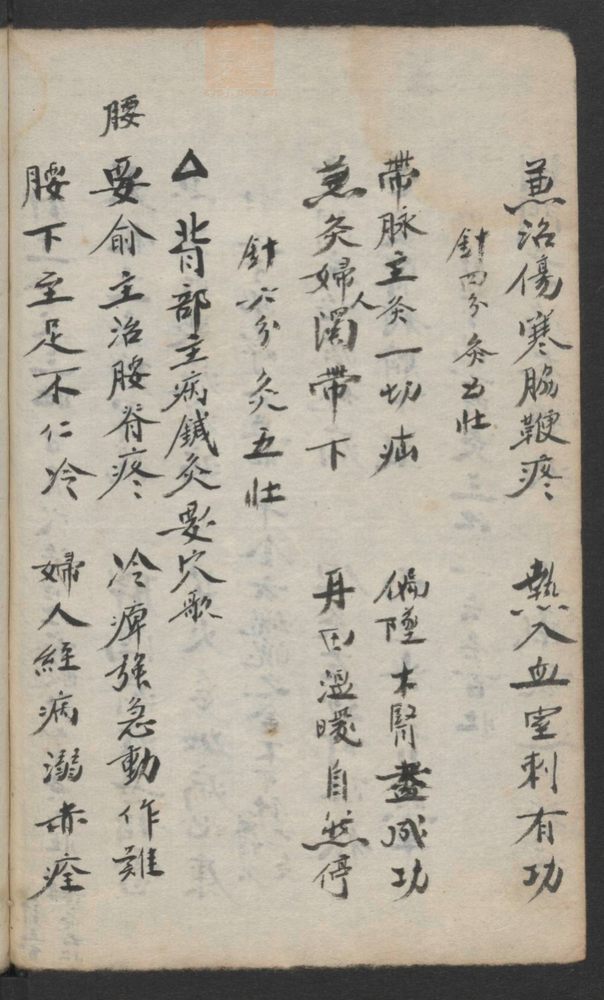 兼治傷寒脇鞕疼 熱入血室刺有功
針四分 灸五壯
帶脉主灸一切疝 偏墜木腎盡成功
兼灸婦人濁帶下 丹田溫暖自然停
針六分 灸五壯
△背部主病鍼灸要穴歌
腰
要俞主治腰脊疼 冷痺強急動作難
腰下至足不仁冷 婦人經病溺赤痊